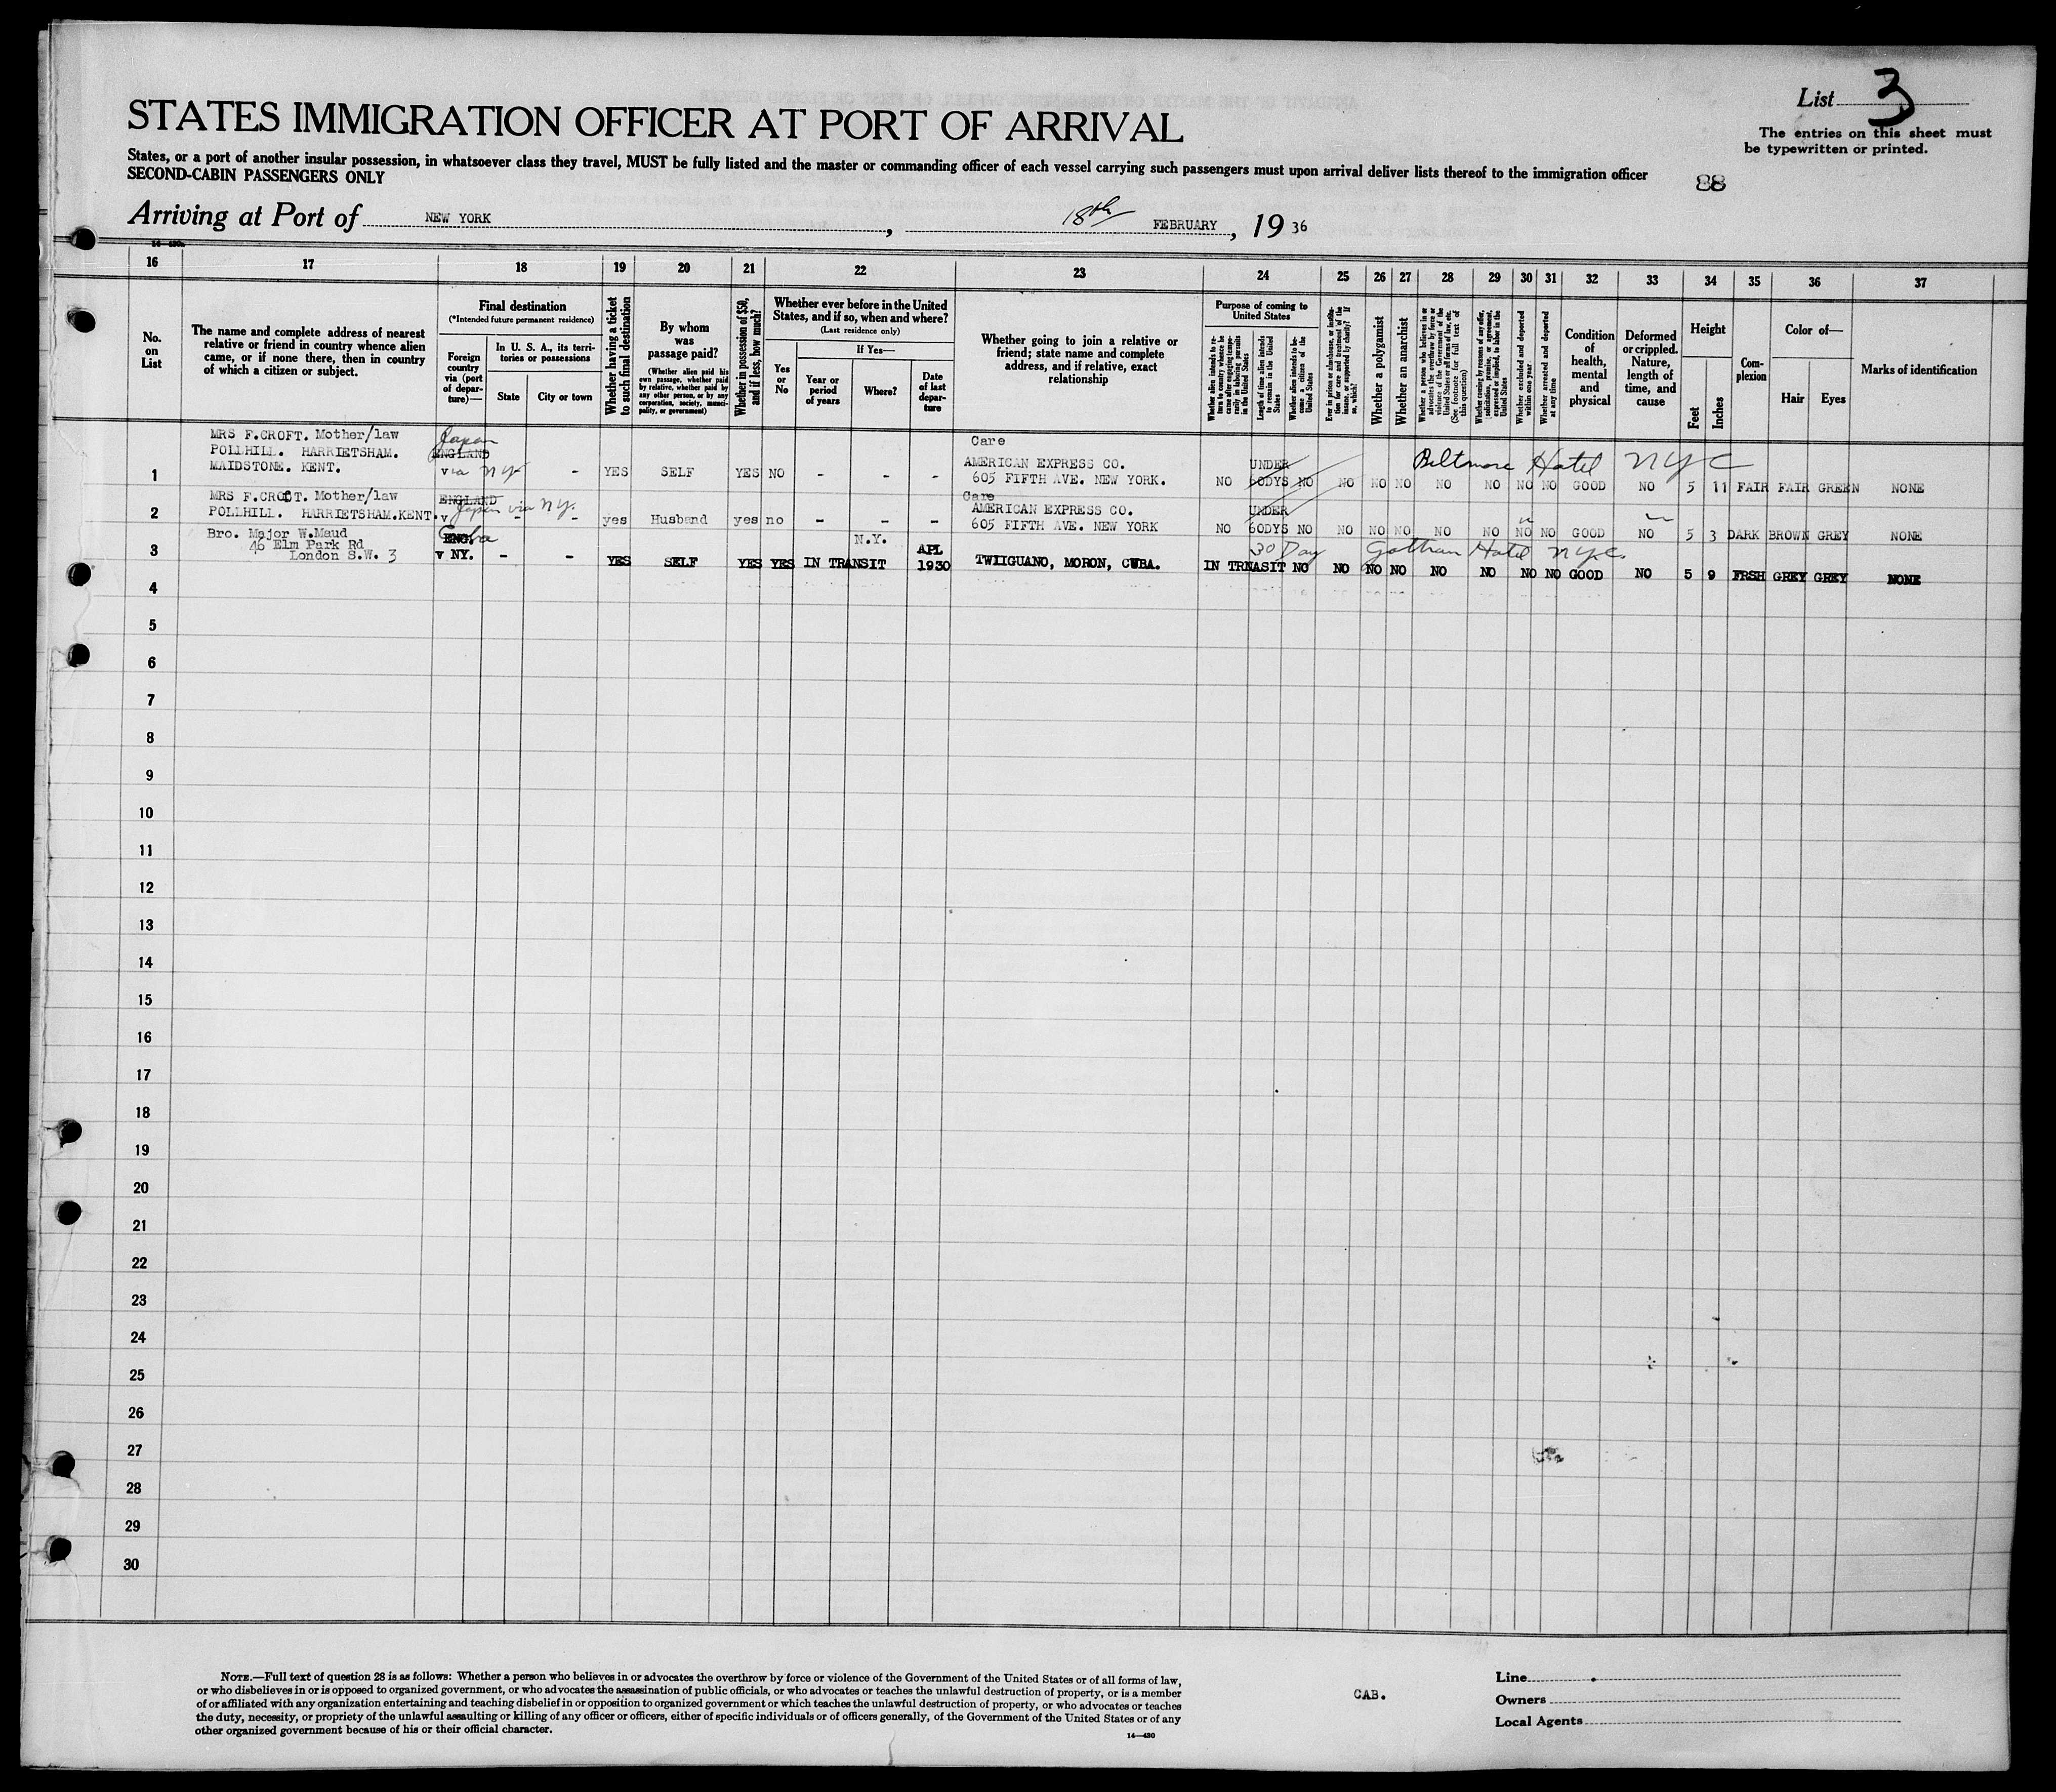 List 3
The entries on this sheet must
be typewritten or printed.
STATES IMMIGRATION OFFICER AT PORT OF ARRIVAL
States, or a port of another insular possession, in whatsoever class they travel, MUST be fully listed and the master or commanding officer of each vessel carrying such passengers must upon arrival deliver lists thereof to the immigration officer
SECOND-CABIN PASSENGERS ONLY
88
Arriving at Port of NEW YORK, 18th FEBRUARY, 19 36
16 17 18 19 20 21 22 23 24 25 26 27 28 29 30 31 32 33 34 35 36 37
No.
on
List
The name and complete address of nearest
relative or friend in country whence alien
came, or if none there, then in country
of which a citizen or subject.
Final destination
(*Intended future permanent residence)
Foreign
country
via (port
of depar-
ture)—
In U. S. A., its terri-
tories or possessions
State
City or town
Whether having a ticket
to such final destination
By whom
was
passage paid?
(Whether alien paid his
own passage, whether paid
by relative, whether paid by
any other person, or by any
corporation, society, munici-
pality, or government)
Whether in possession of $50,
and if less, how much?
Whether ever before in the United
States, and if so, when and where?
(Last residence only)
Yes
or
No
If Yes—
Year or
period
of years
Where?
Date
of last
depar-
ture
Whether going to join a relative or
friend; state name and complete
address, and if relative, exact
relationship
Purpose of coming to
United States
Whether alien intends to re-
turn to country whence he
came after engaging tempo-
rarily in laboring pursuits
in the United States
Length of time alien intends
to remain in the United
States
Whether alien intends to be-
come a citizen of the
United States
Ever in prison or almshouse, or institu-
tion for care and treatment of the
insane, or supported by charity? If
so, which?
Whether a polygamist
Whether an anarchist
Whether a person who believes in or
advocates the overthrow by force or
violence of the Government of the
United States or of all forms of law, etc.
(See footnote for full text of
this question)
Whether coming by reasons of any offer,
solicitation, promise, or agreement,
expressed or implied, to labor in the
United States
Whether excluded and deported
within one year
Whether arrested and deported
at any time
Condition
of
health,
mental
and
physical
Deformed
or crippled.
Nature,
length of
time, and
cause
Height
Feet
Inches
Com-
plexion
Color of—
Hair
Eyes
Marks of identification
MRS F.CROFT. Mother/law
POLLHILL. HARRIETSHAM.
MAIDSTONE. KENT.
Japan
ENGLAND
via NY
1 - YES SELF YES NO - - -
Care
AMERICAN EXPRESS CO.
605 FIFTH AVE. NEW YORK.
Biltmore Hotel NYC
UNDER
NO 60DYS NO NO NO NO NO NO NO NO GOOD NO 5 11 FAIR FAIR GREEN NONE
MRS F.CROCT. Mother/law
POLLHILL. HARRIETSHAM.KENT.
ENGLAND
v Japan via NY.
2 - - yes Husband yes no - - -
Care
AMERICAN EXPRESS CO.
605 FIFTH AVE. NEW YORK
UNDER
NO 60DYS NO NO NO NO NO NO NO NO GOOD NO 5 3 DARK BROWN GREY NONE
Bro. Major W.Maud
46 Elm Park Rd
London S.W. 3
Cuba
ENG.
v NY.
3 - - YES SELF YES YES IN TRANSIT N.Y. APL 1930
TWIIGUANO, MORON, CUBA.
30 Day Gotham Hotel NYC.
IN TRNASIT NO NO NO NO NO NO NO NO GOOD NO 5 9 FRSH GREY GREY NONE
4
5
6
7
8
9
10
11
12
13
14
15
16
17
18
19
20
21
22
23
24
25
26
27
28
29
30
NOTE.—Full text of question 28 is as follows: Whether a person who believes in or advocates the overthrow by force or violence of the Government of the United States or of all forms of law,
or who disbelieves in or is opposed to organized government, or who advocates the assassination of public officials, or who advocates or teaches the unlawful destruction of property, or is a member
of or affiliated with any organization entertaining and teaching disbelief in or opposition to organized government or which teaches the unlawful destruction of property, or who advocates or teaches
the duty, necessity, or propriety of the unlawful assaulting or killing of any officer or officers, either of specific individuals or of officers generally, of the Government of the United States or of any
other organized government because of his or their official character.
14—430
CAB.
Line
Owners
Local Agents